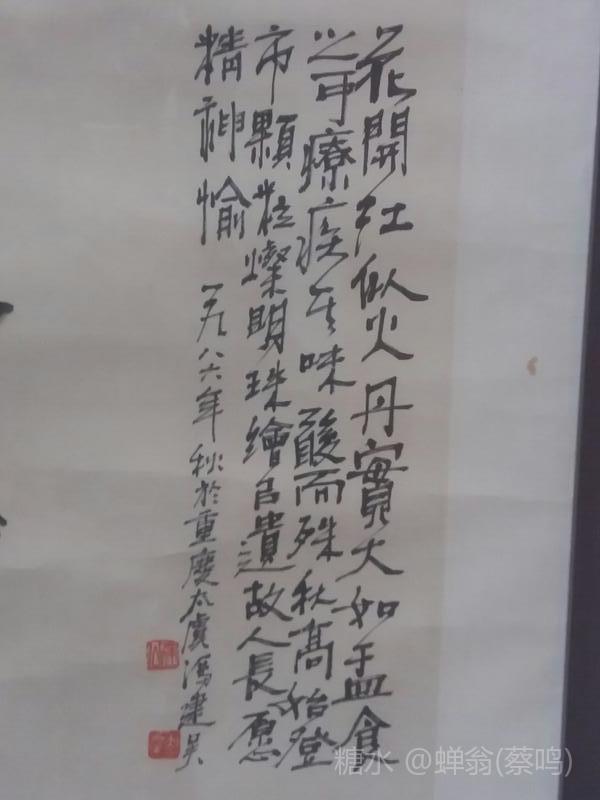 花開紅似火丹實大如盂食
之可療疾其味酸而殊秋高始登
市顆粒燦明珠繪呂遺故人長愿
精神愉 一九八六年秋於重慶太虞馮建吴
糖水 @蝉翁(蔡鸣)